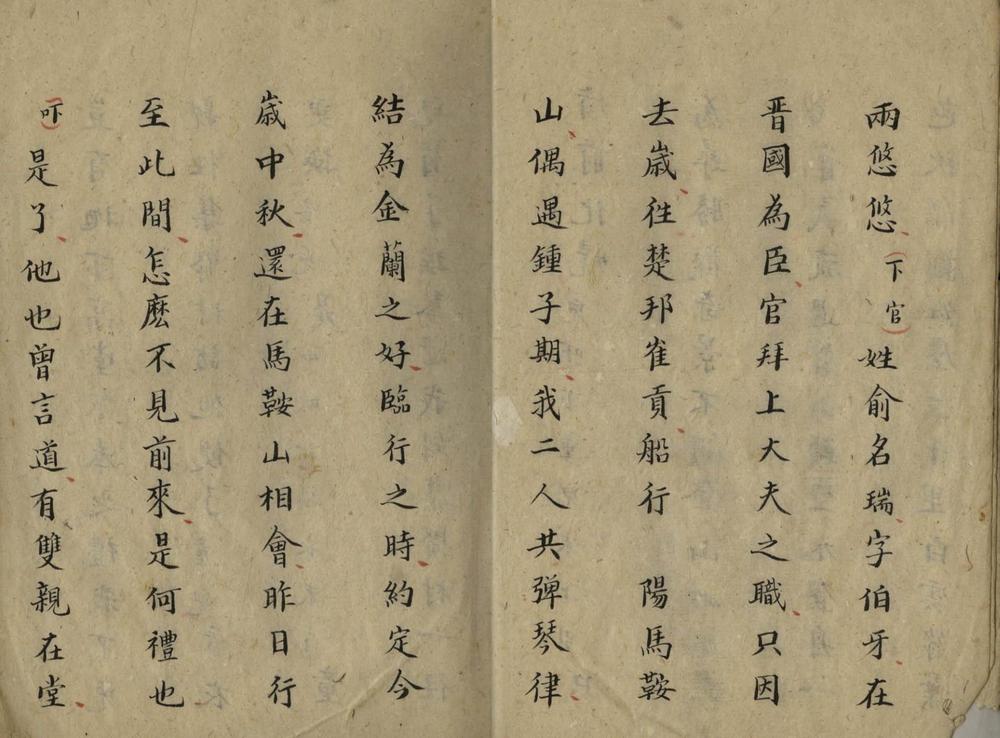 兩悠悠、(下官)姓俞名瑞、字伯牙、在
晋國為臣、官拜上大夫之職、只因
去歲、徃楚邦雀貢、船行　陽馬鞍
山、偶遇鍾子期、我二人共弹琴律、
結為金蘭之好、臨行之時、約定今
歲中秋、還在馬鞍山相會、昨日行
至此間、怎麽不見前來、是何禮也
(吓)是了、他也曾言道、有雙親在堂、